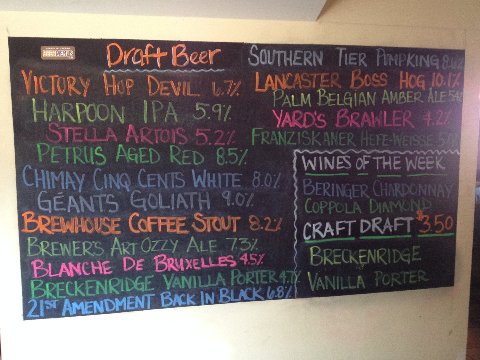 Draft Beer
Victory Hop Devil 6.7%
Harpoon IPA 5.9%
Stella Artois 5.2%
Petrus Aged Red 8.5%
Chimay Cinq Cents White 8.0%
Geants Goliath 9.0%
Brewhouse Coffee Stout 8.2%
Brewer's Art Ozzy Ale 7.3%
Blanche De Bruxelles 4.5%
Breckenridge Vanilla Porter 4.7%
21st Amendment Back in Black 6.8%
Southern Tier Pumking
Lancaster Boss Hog 10.1%
Palm Belgian Amber Ale
Yard's Brawler 4.2%
Franziskaner Hefe-Weisse
Wines of the Week
Beringer Chardonnay
Coppola Diamond
Craft Draft $3.50
Breckenridge
Vanilla Porter